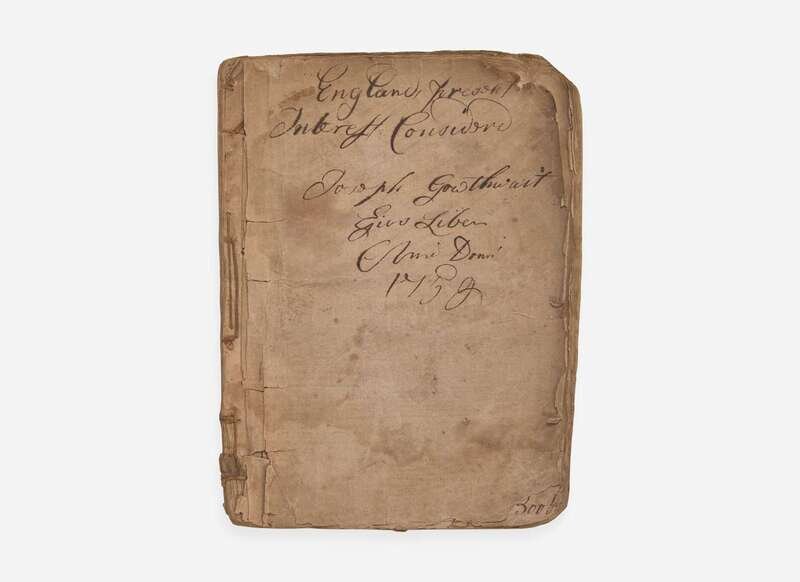 Englands present
Interest Considerd
Joseph Gowthwait
Eius Liber
Anni Domi
1759